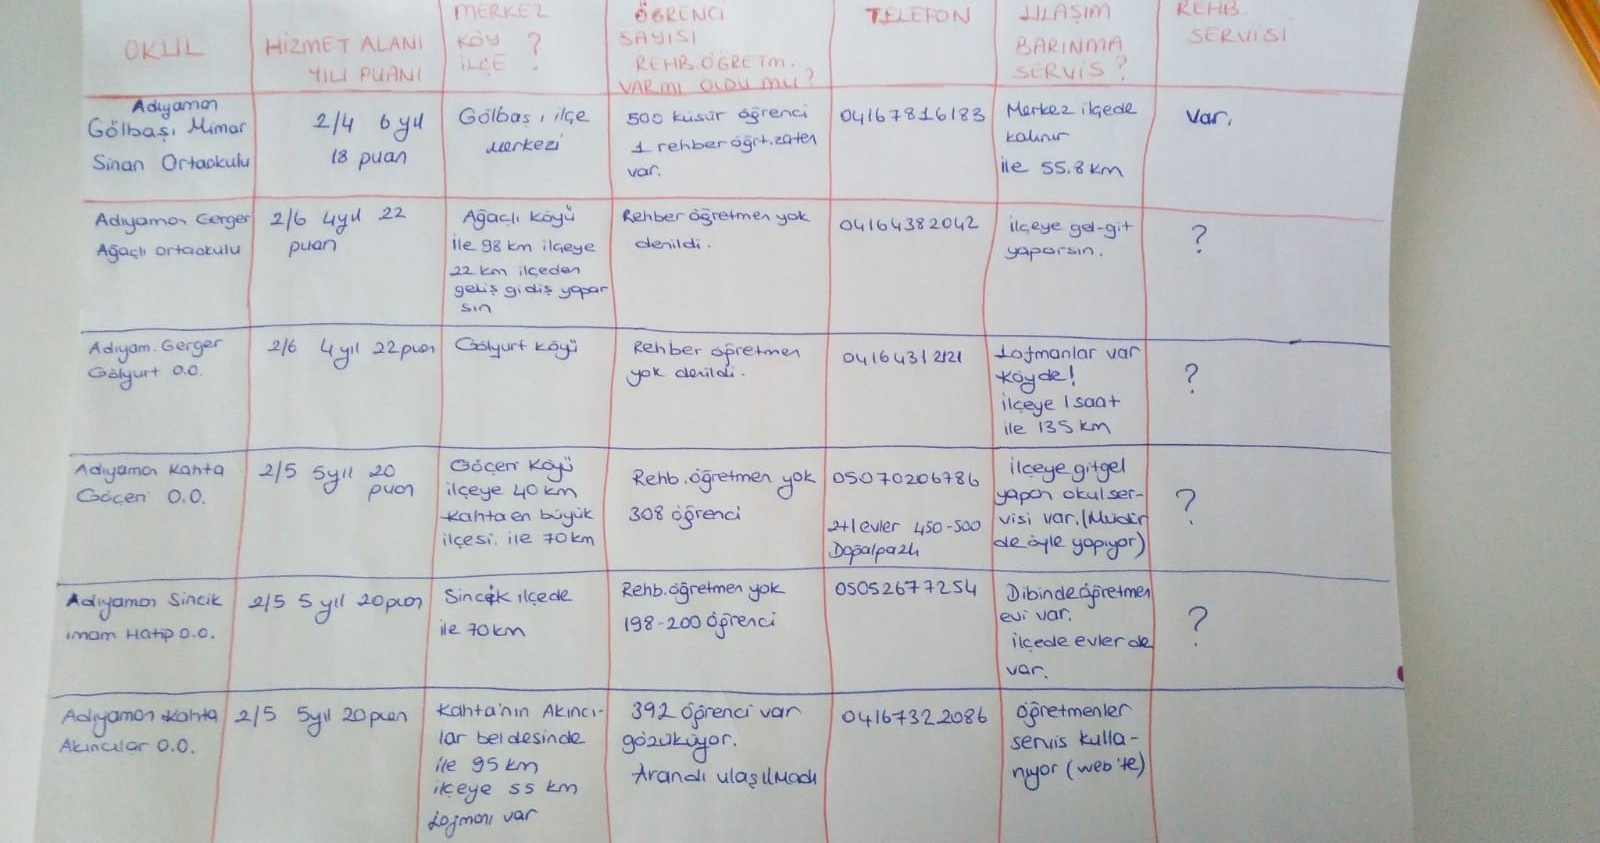 OKUL
HİZMET ALANI
YILI PUANI
MERKEZ
KÖY ?
İLÇE
ÖĞRENCİ
SAYISI
REHB. ÖĞRETM.
VARMI OLDU MU?
TELEFON
ULAŞIM
BARINMA
SERVİS?
REHB.
SERVİSİ
Adıyaman
Gölbaşı Mimar
Sinan Ortaokulu
2/4 6 yıl
18 puan
Gölbaşı ilçe
Merkezi
500 küsür öğrenci
1 rehber öğrt. zaten
var.
04167816183
Merkez ilçede
kalınır
ile 55.8 km
Var.
Adıyaman Gerger
Ağaçlı ortaokulu
2/6 4yıl 22
puan
Ağaçlı köyü
ile 98 km ilçeye
22 km ilçeden
geliş gidiş yapar
sın
Rehber öğretmen yok
denildi.
04164382042
ilçeye gel-git
yaparsın.
?
Adıyam. Gerger
Gölyurt O.O.
2/6 4 yıl 22 puan
Gölyurt köyü
Rehber öğretmen
yok denildi.
04164312121
Lojmanlar var
köyde!
ilçeye 1 saat
ile 135 km
?
Adıyaman Kahta
Göçeri O.O.
2/5 5yıl 20
puan
Göçeri Köyü
ilçeye 40 km
Kahta en büyük
ilçesi. ile 70 km
Rehb. öğretmen yok
308 öğrenci
05070206786
2+1 evler 450-500
Doğalgazlı
ilçeye gitgel
yapan okul ser-
visi var. (Müdür
de öyle yapıyor)
?
Adıyaman Sincik
imam Hatip O.O.
2/5 5 yıl 20puan
Sincik ilçede
ile 70 km
Rehb. öğretmen yok
198-200 öğrenci
05052677254
Dibinde öğretmen
evi var.
ilçede evler de
var.
?
Adıyaman Kahta
Akıncılar O.O.
2/5 5yıl 20 puan
Kahta'nın Akıncı-
lar beldesinde
ile 95 km
ilçeye 55 km
Lojmanı var
392 öğrenci var
gözüküyor.
Arandı ulaşılmadı
04167322086
öğretmenler
servis kulla-
nıyor (web'te)